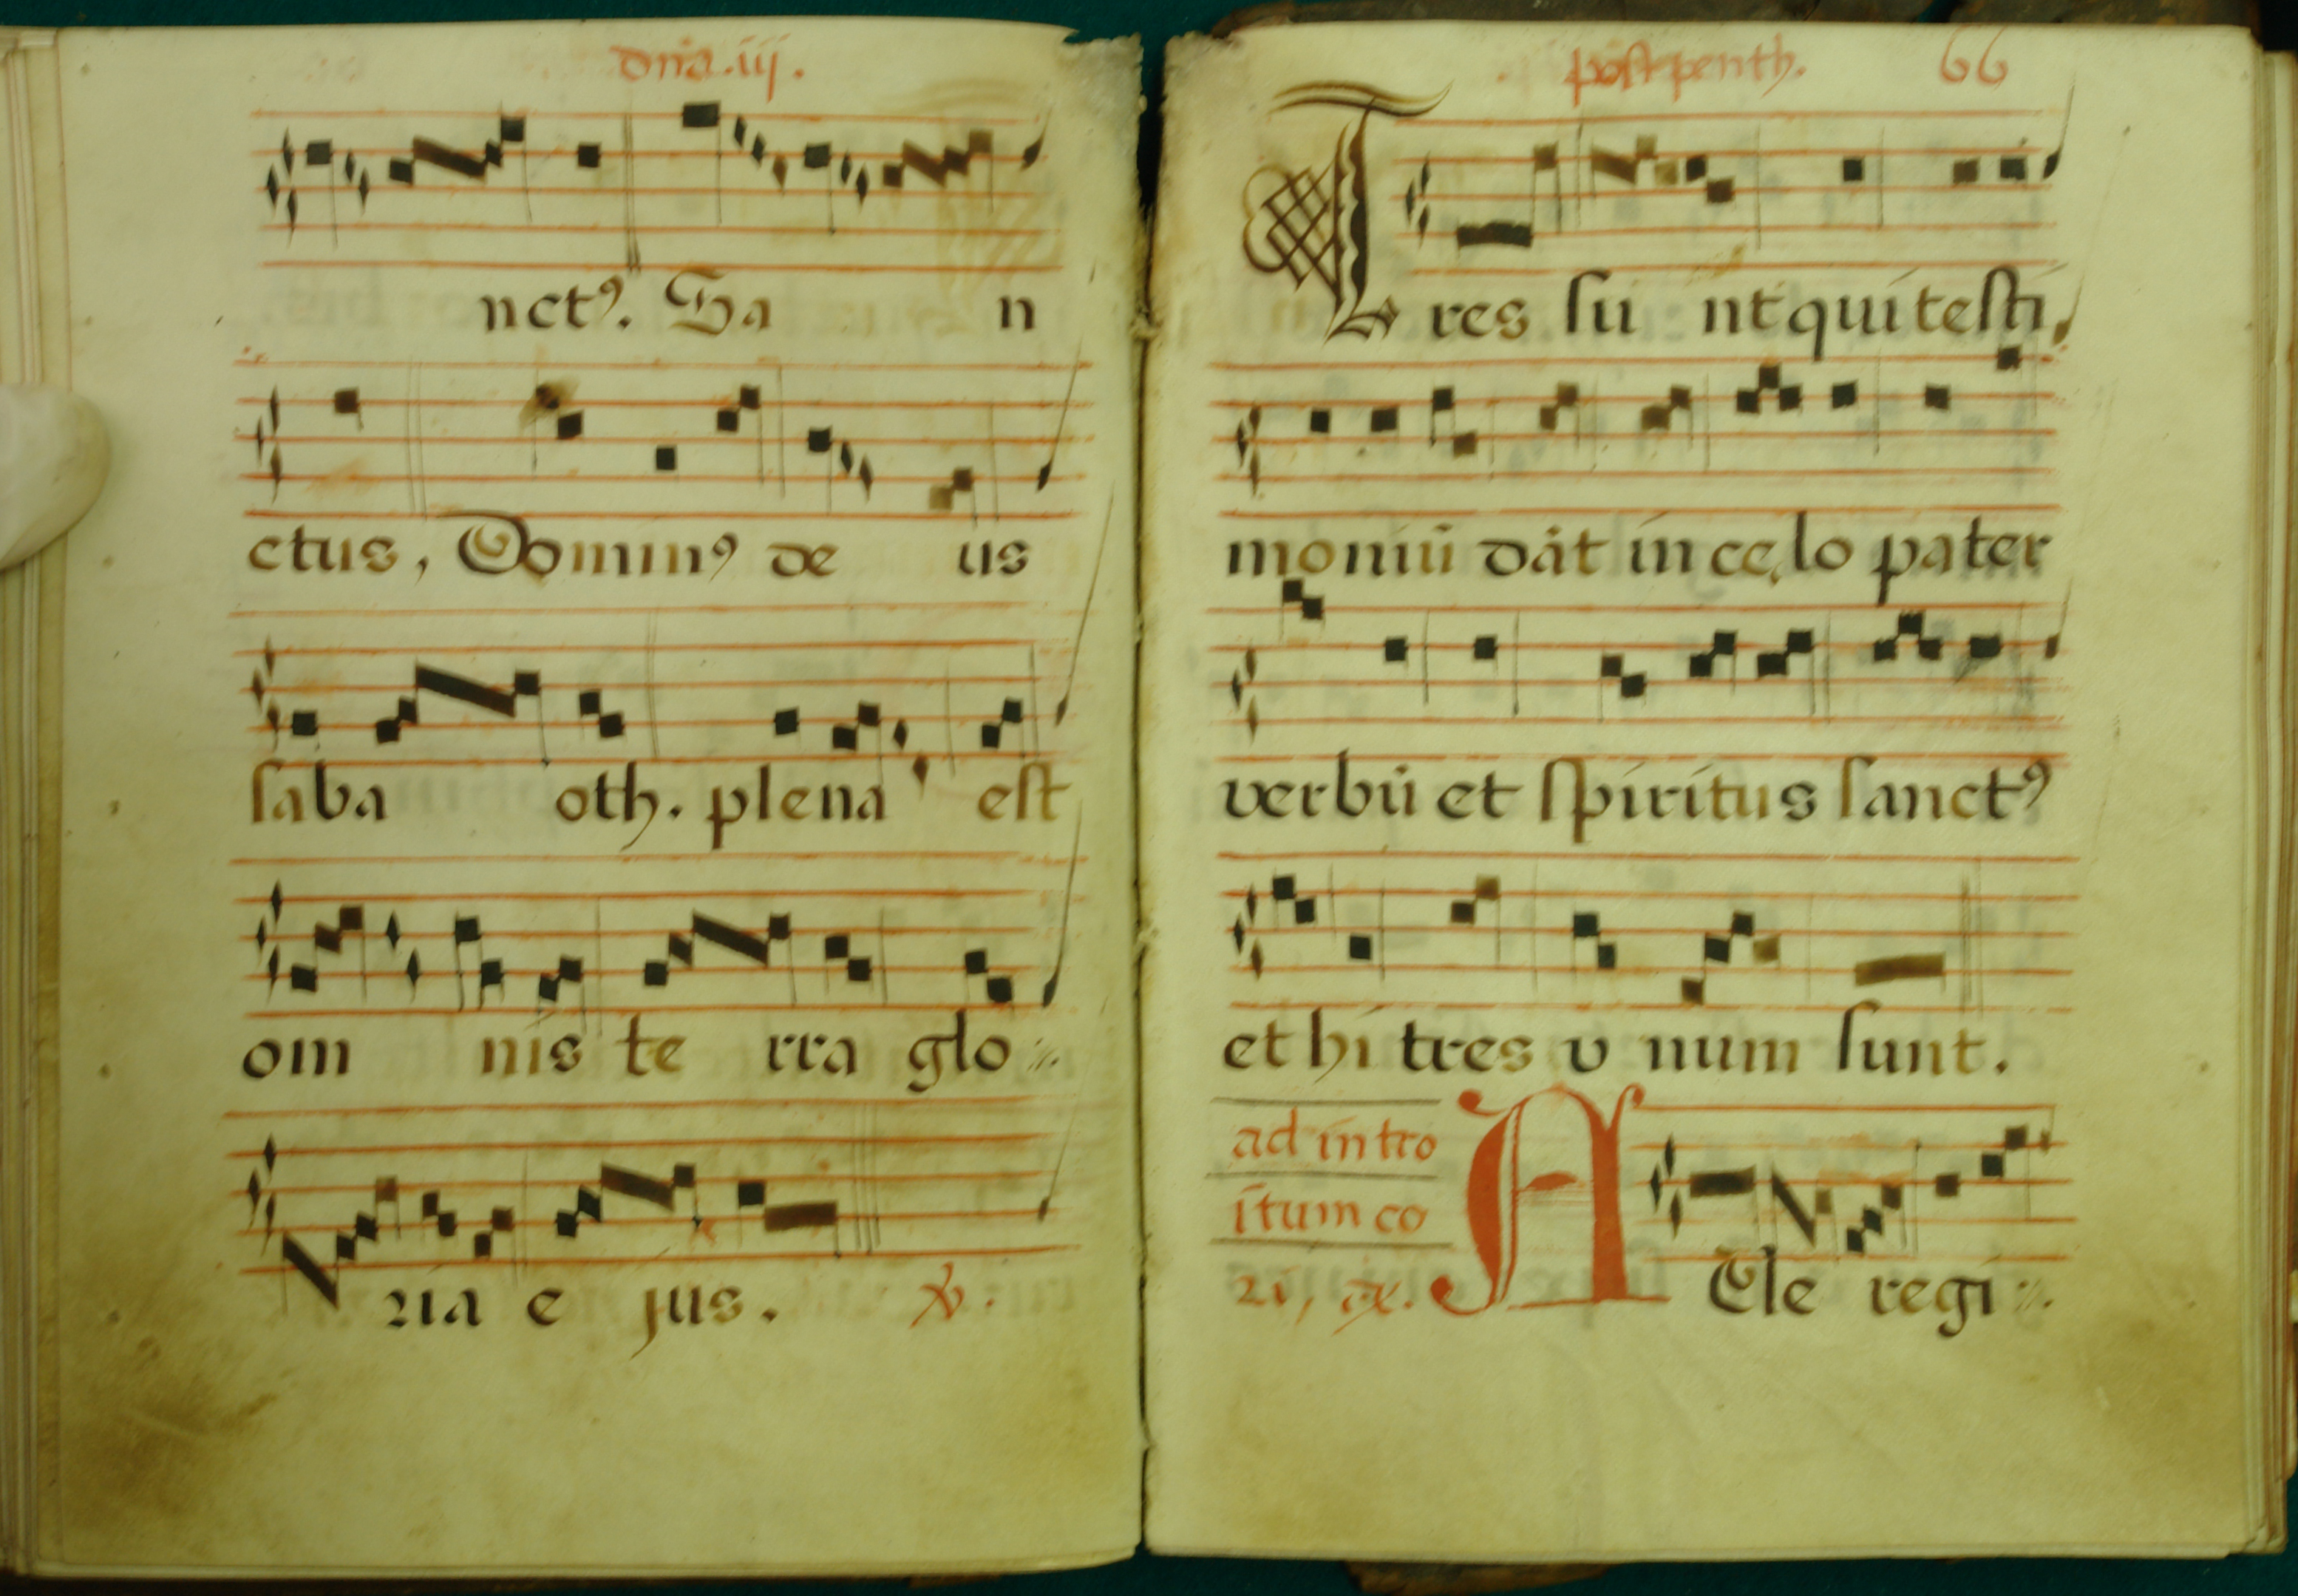 dn̄a.iij.
nctꝰ. Sa n
ctus, Dominꝰ de us
saba oth. plena est
om nis te rra glo
ria e jus. ℣.
post penth. 66
Tres su nt qui testi
moniū dāt in cęlo pater
verbū et spiritus sanctꝰ
et hi tres v num sunt.
ad intro
itum co
A Ele regi